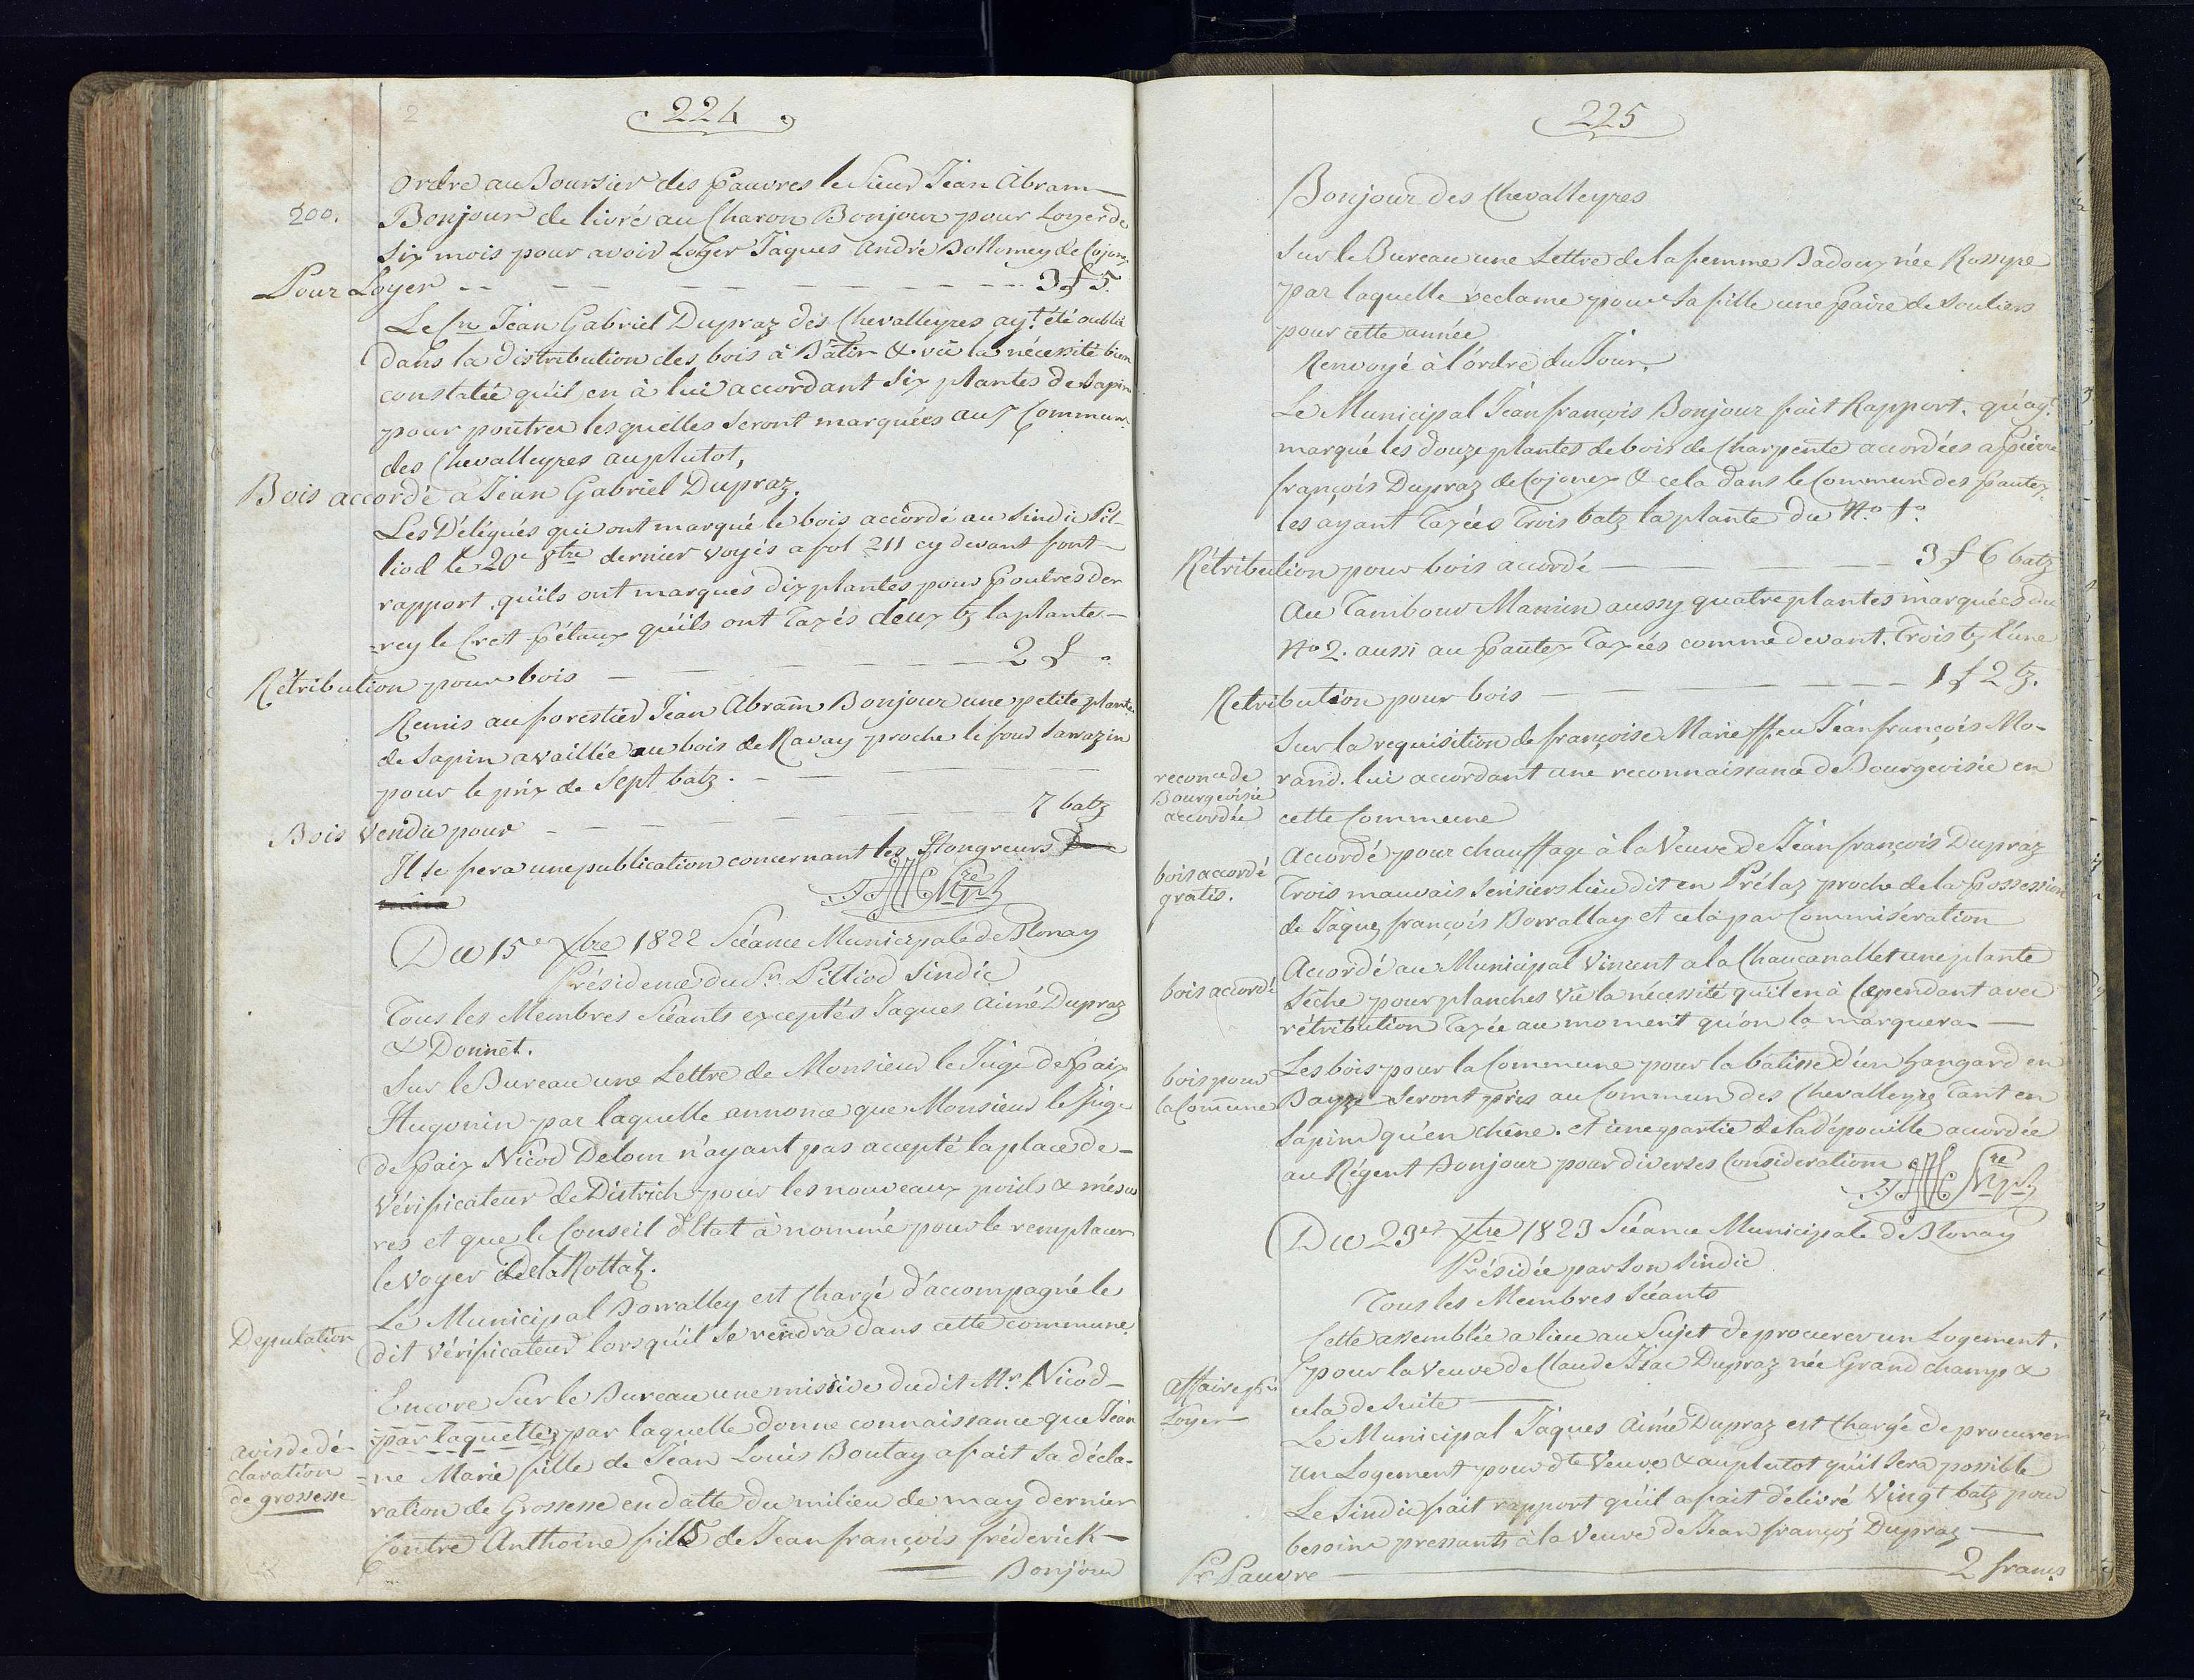 224
Ordre au Boursier des pauvres le Sieur Jean Abram
200. Bonjour de livré au Charon Bonjour pour Loyer de
Six mois pour avoir Loger Jaques André Dollomey de Cojonex
Pour Loyer 3 f 5.
Le Sr. Jean Gabriel Dupraz des Chevalleyres ayt. été oublié
dans la distribution des bois à Bâtir & vû la nécessité bien
constatée qu'il en à lui accordant Six plantes de Sapin
pour poutres lesquelles seront marquées aux Communs
des Chevalleyres au plutot,
Bois accordé à Jean Gabriel Dupraz.
Les Délégués qui ont marqué le bois accordé au Sindic Pil-
liod le 20e 8bre dernier voyés a fol 211 cy devant font
rapport qu'ils ont marqués dix plantes pour Poutres der
=rey le Cret Pélaux qu'ils ont Taxés deux bz la plante.
Rétribution pour bois 2 f.
Remis au forestier Jean Abram Bonjour une petite plante
de Sapin availlée au bois de Ravay proche le four Sarrazin
pour le prix de Sept batz.
Bois vendu pour 7 batz
Il se fera une publication concernant les Hongreurs
Du 15e Xbre 1822 Séance Municipale de Blonay
Présidence du Sr. Pilliod Sindic
Tous les Membres Séants exceptés Jaques Aimé Dupraz
& Donnet.
Sur le Bureau une Lettre de Monsieur le Juge de Paix
Hugonin par laquelle annonce que Monsieur le Juge
de paix Nicod Delom n'ayant pas accepté la place de
Vérificateur de District pour les nouveaux poids & mésu
res et que le Conseil d'Etat à nommé pour le remplacer
le Voyer De la Rottaz.
Le Municipal Dorralley est Chargé d'accompagné le
Deputation dit Vérificateur lorsqu'il se rendra dans cette commune.
Encore Sur le Bureau une missive dudit Mr. Nicod
par laquelle, par laquelle donne connaissance que Jean
avis de dé-
claration
de grossesse
=ne Marie fille de Jean Louis Boulay a fait Sa décla-
ration de Grossesse en datte du milieu de may dernier
Contre Anthoine fils de Jean françois fréderick
Bonjour
225
Bonjour des Chevalleyres
Sur le Bureau une Lettre de la femme Badoux née Rossyre
par laquelle reclame pour Sa fille une paire de Souliers
pour cette année
Renvoyé à l'ordre du Jour.
Le Municipal Jean françois Bonjour fait Rapport. qu'ayt
marqué les douze plantes de bois de Charpente accordées a pierre
françois Dupraz de Cojonex & cela dans le Commun des Pautex
les ayant Taxées Trois batz la plante du No. 1o
Rétribution pour bois accordé 3 f 6 batz
Au Tambour Mamin aussy quatre plantes marquées du
No 2. aussi au Pautex Taxées comme devant. Trois bz l'une
Retribution pour bois 1 f 2 bz.
Sur la requisition de françoise Marie ffeu Jean françois Mo-
reconce de
Bourgeoisie
accordée
rand. lui accordant une reconnaissance de Bourgeoisie en
cette Commune
bois accordé
gratis.
Accordé pour chauffage à la Veuve de Jean françois Dupraz
Trois mauvais Serisiers lieu dit en Prélaz proche de la Possession
de Jaques françois Dorrallay et cela par Commiseration
bois accordé
Accordé au Municipal Vincent a la Chaucanallet une plante
Sêche pour planches vû la nécessité qu'il en à Cependant avec
rétribution Taxée au moment qu'on la marquera
bois pour
la Commune
Les bois pour la Commune pour la bâtisse d'un hangard en
Bayze Seront pris au Commun des Chevalleyres Tant en
Sapin qu'en chêne. et une partie de la dépouille acordée
au Régent Bonjour pour diverses Considerations
Du 23e Xbre 1823 Séance Municipale de Blonay
Présidée par Son Sindic
Tous les Membres Séants
Cette assemblée a lieu au Sujet de procurer un Logement.
affaire pr
Loyer
pour la Veuve de Claude Isac Dupraz née Grand champ &
cela de Suite
Le Municipal Jaques Aimé Dupraz est Chargé de procurer
un Logement pour dte Veuve & au plutot qu'il Sera possible
Le Sindic fait rapport qu'il a fait délivré Vingt batz pour
besoins pressants à la Veuve de Jean françois Dupraz
Pr Pauvre 2 francs